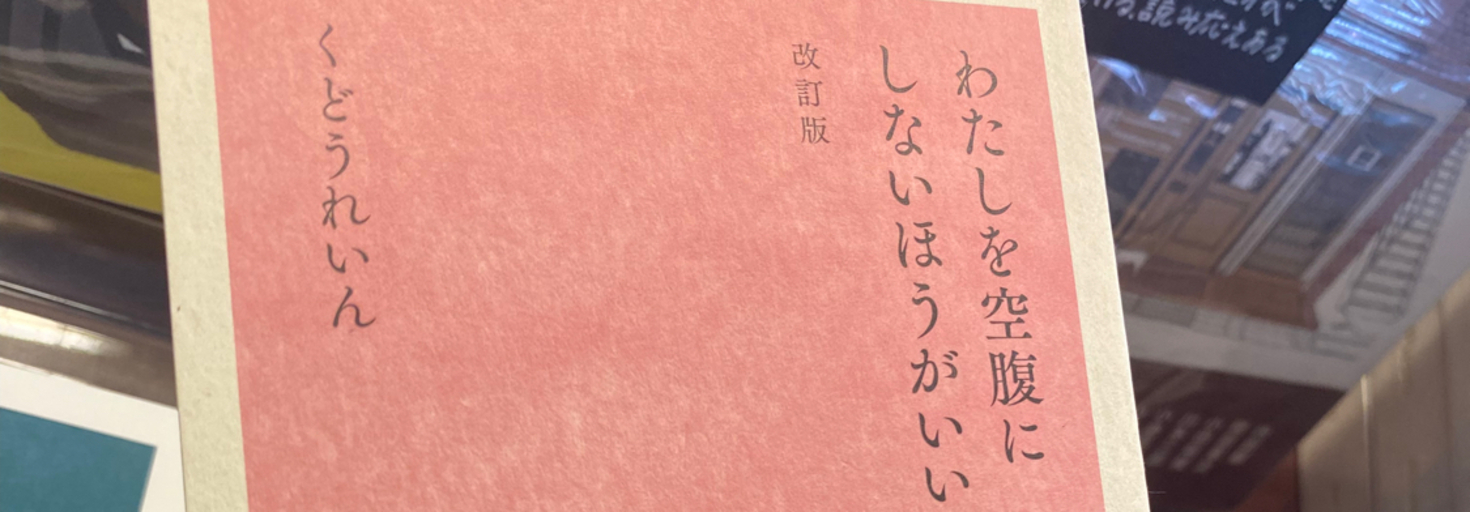 わたしを空腹に
しないほうがいい
改訂版
くどうれいん
読み応えある